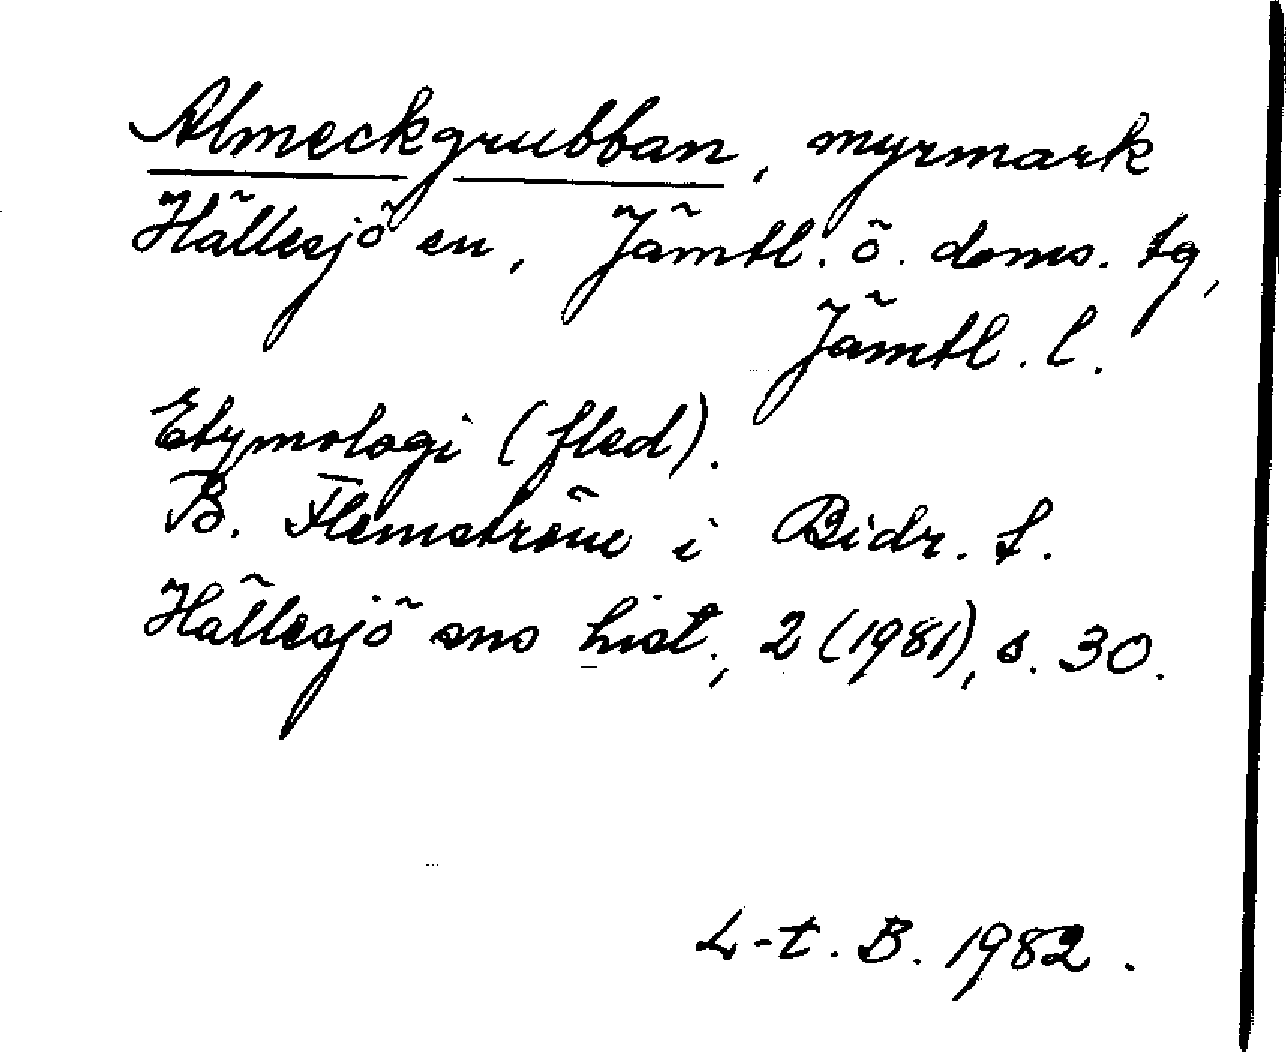 Almeckgrubban, myrmark
Hällesjö sn, Jämtl. ö. doms. tg,
Jämtl. l.
Etymologi (fled).
B. Flemström i Bidr. t.
Hällesjö sns hist., 2 (1981), s. 30.
L-t. B. 1982.